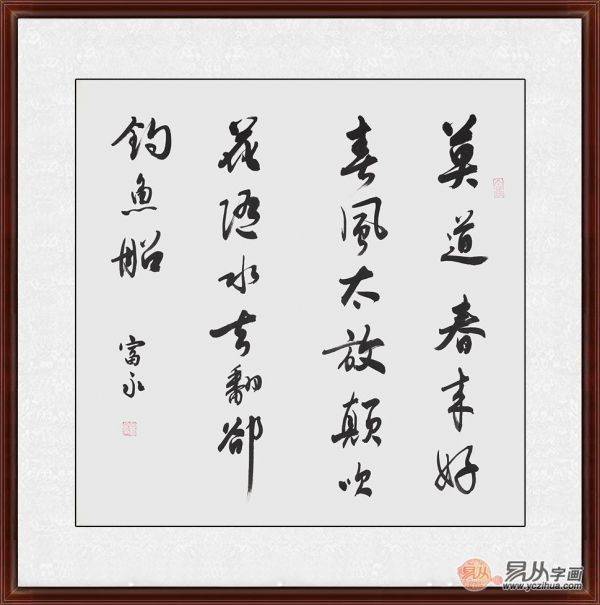 莫道春来好
喜風太放顛吹
花随水去翻卻
釣魚船
富永
易从字画
www.yczihua.com